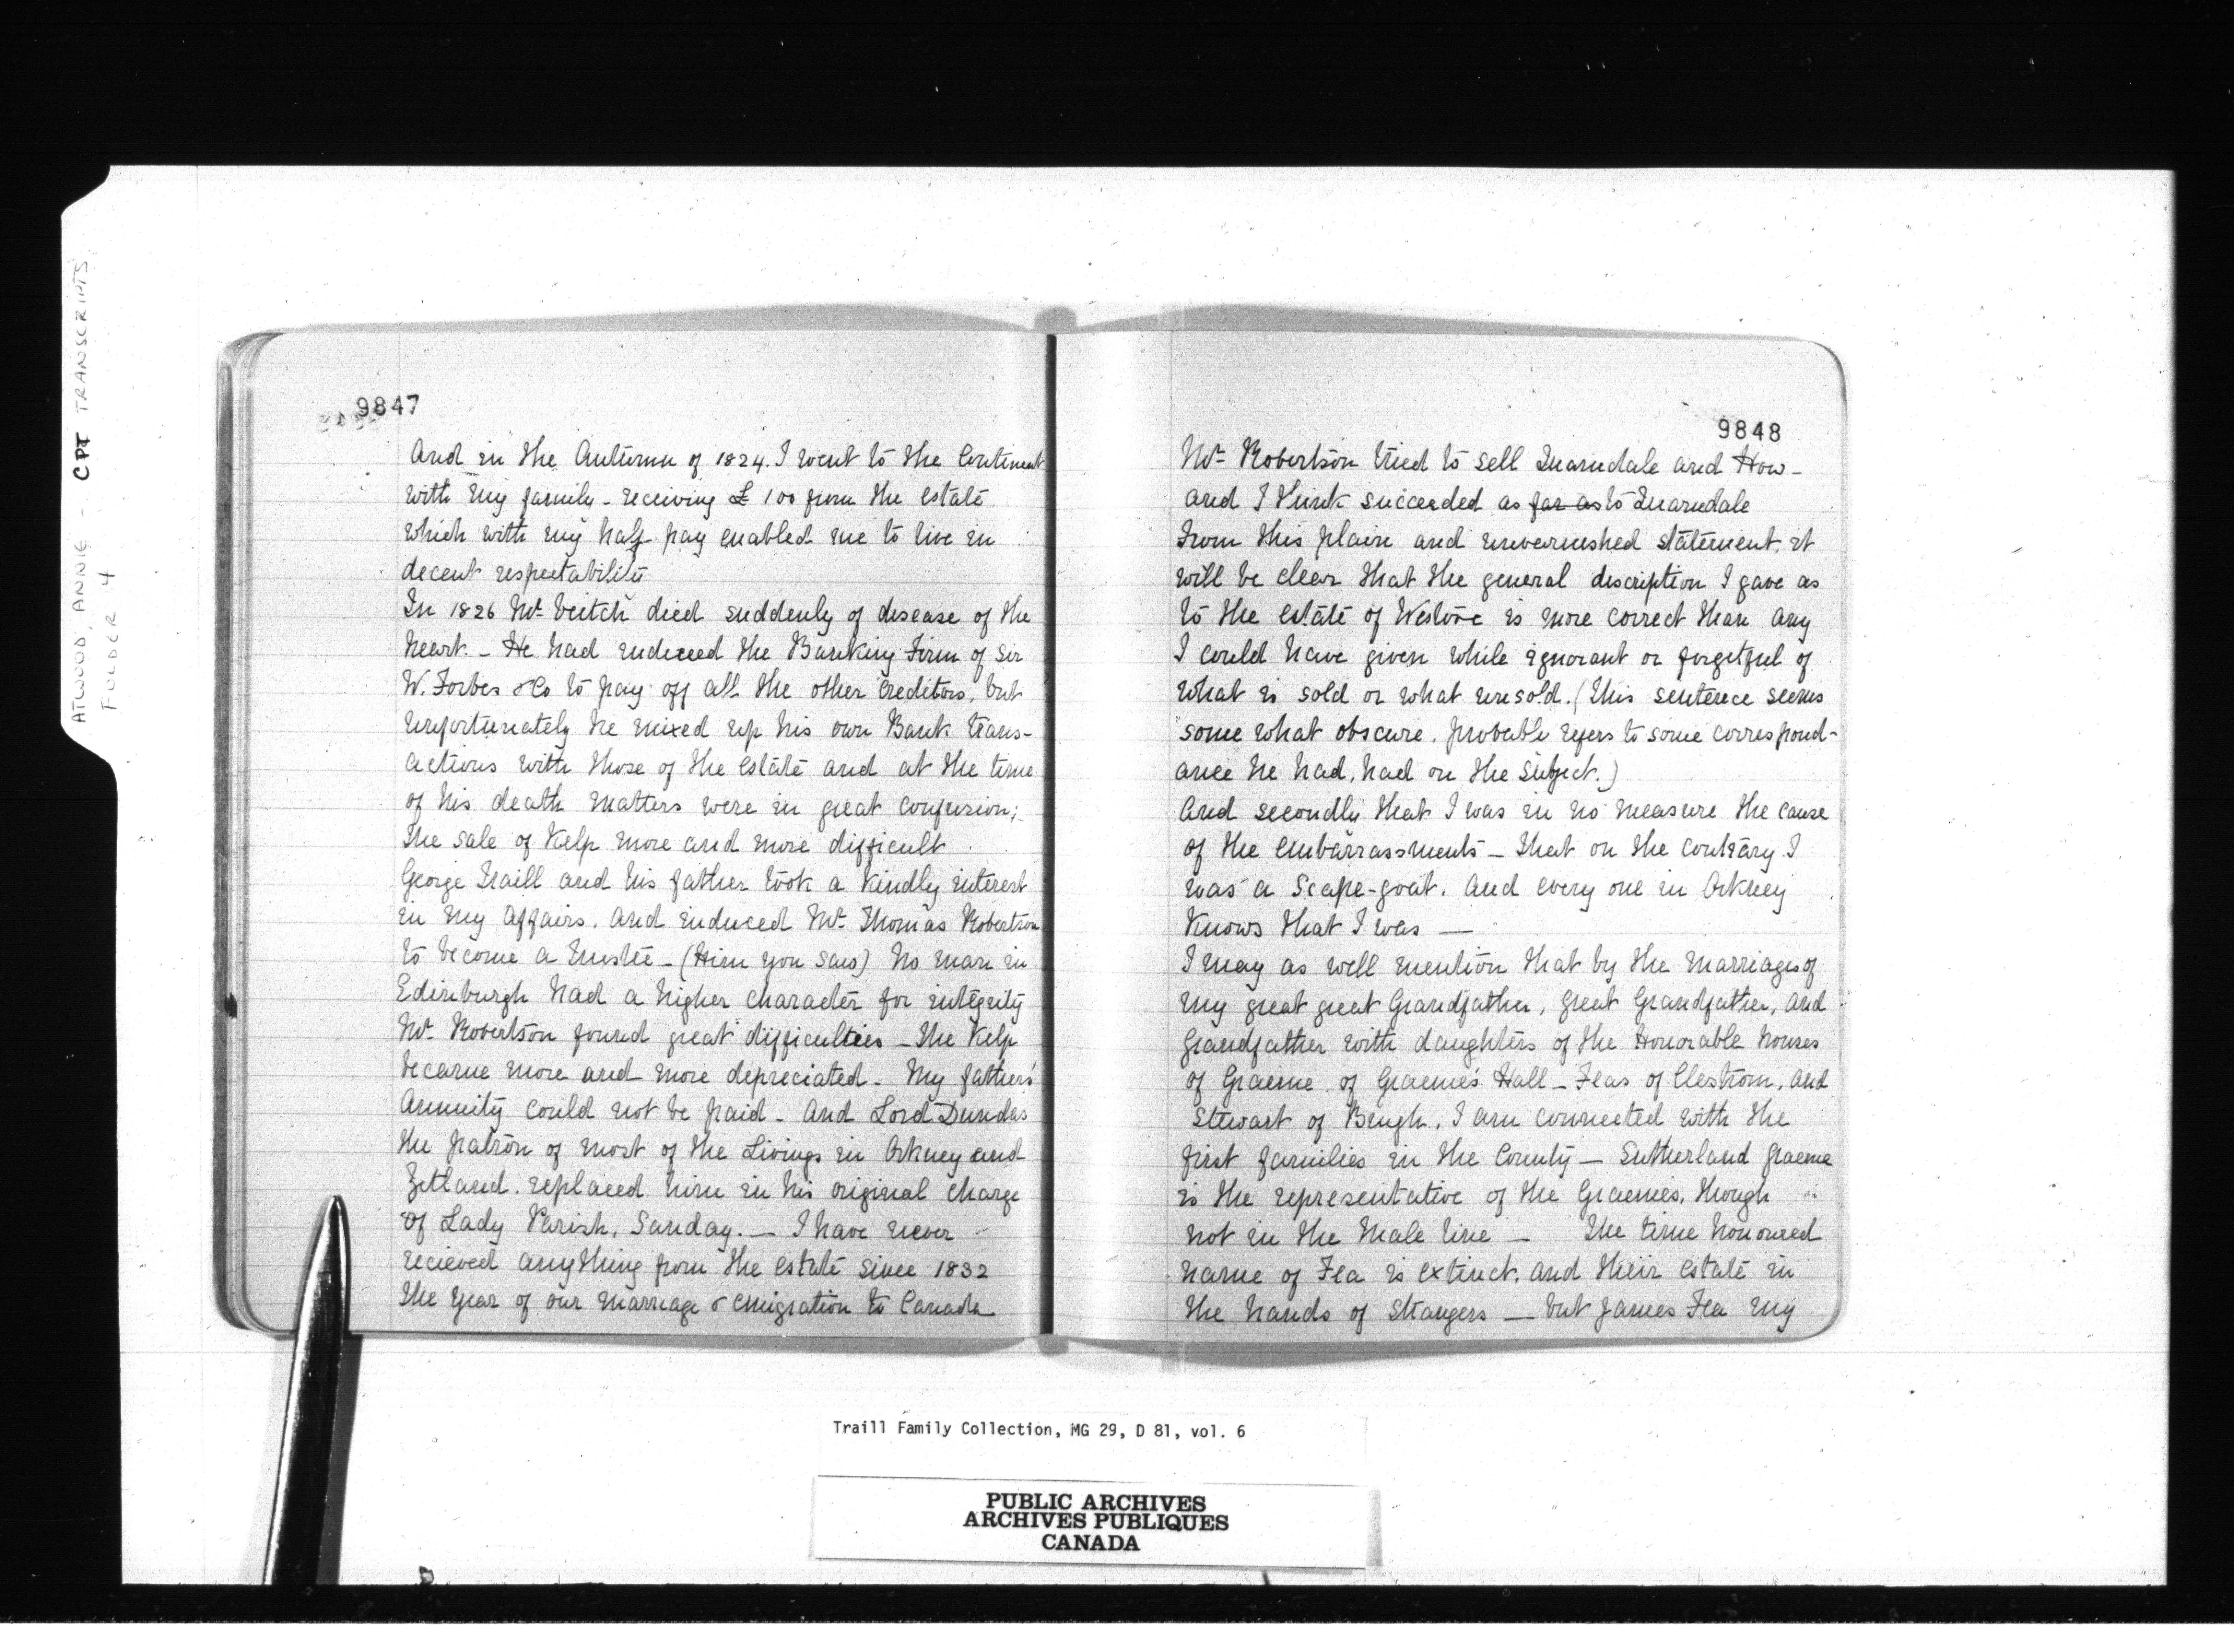 ATWOOD, ANNIE - CPT TRANSCRIPTS
FOLDER 4
9847
And in the Autumn of 1824. I went to the Continent
with my family - receiving £ 100 from the estate
which with my half pay enabled me to live in
decent respectability
In 1826 Mr. Veitch died suddenly of disease of the
heart. - He had induced the Banking Firm of Sir
W. Forbes & Co to pay off all the other Creditors, but
unfortunately he mixed up his own Bank trans-
actions with those of the estate and at the time
of his death matters were in great confusion;
The sale of Kelp more and more difficult
George Traill and his father took a kindly interest
in my affairs. and induced Mr. Thomas Robertson
to become a Trustee - (Him you saw) No man in
Edinburgh had a higher character for integrity
Mr. Robertson found great difficulties - The Kelp
became more and more depreciated - My fathers'
Annuity could not be paid - And Lord Dundas
the patron of most of the Livings in Orkney and
Zetland. replaced him in his original charge
of Lady Parish, Sanday. — I have never
recieved anything from the estate since 1832
the year of our marriage & emigration to Canada
9848
Mr. Robertson tried to sell Quarndale and How -
and I think succeeded as far as to Quarndale
From this plain and unvernished statement, it
will be clear that the general discription I gave as
to the estate of Westove is more correct than any
I could have given while ignorant or forgetful of
what is sold or what unsold. (This sentence seems
some what obscure. probable refers to some correspond-
ance he had, had on the subject.)
And secondly that I was in no measure the cause
of the embarrassments - That on the contrary I
was a Scape-goat. And every one in Orkney
Knows that I was —
I may as well mention that by the Marriages of
my great great Grandfather, great Grandfather, and
Grandfather with daughters of the Honorable houses
of Graeme of Graeme's Hall - Feas of Clestrom, and
Stewart of Brugh, I am connected with the
first families in the County - Sutherland Graeme
is the representative of the Graemes, though
not in the Male line - The time honoured
name of Fea is extinct. and their estate in
the hands of strangers — but James Fea my
Traill Family Collection, MG 29, D 81, vol. 6
PUBLIC ARCHIVES
ARCHIVES PUBLIQUES
CANADA